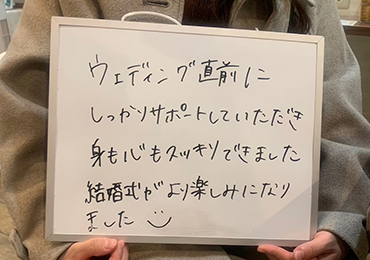 ウェディング直前に
しっかりサポートしていただき
身も心もスッキリできました
結婚式がより楽しみになり
ました